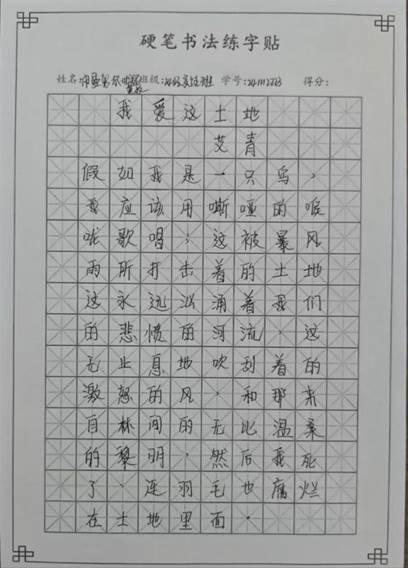 硬笔书法练字贴
姓名: 班级: 学号: 得分:
我爱这土地
艾青
假如我是一只鸟，
我应该用嘶哑的喉
咙歌唱；这被暴风
雨所打击着的土地
这永远汹涌着我们
的悲愤的河流，这
无止息地吹刮着的
激怒的风，和那来
自林间的无比温柔
的黎明，然后我死
了，连羽毛也腐烂
在土地里面。